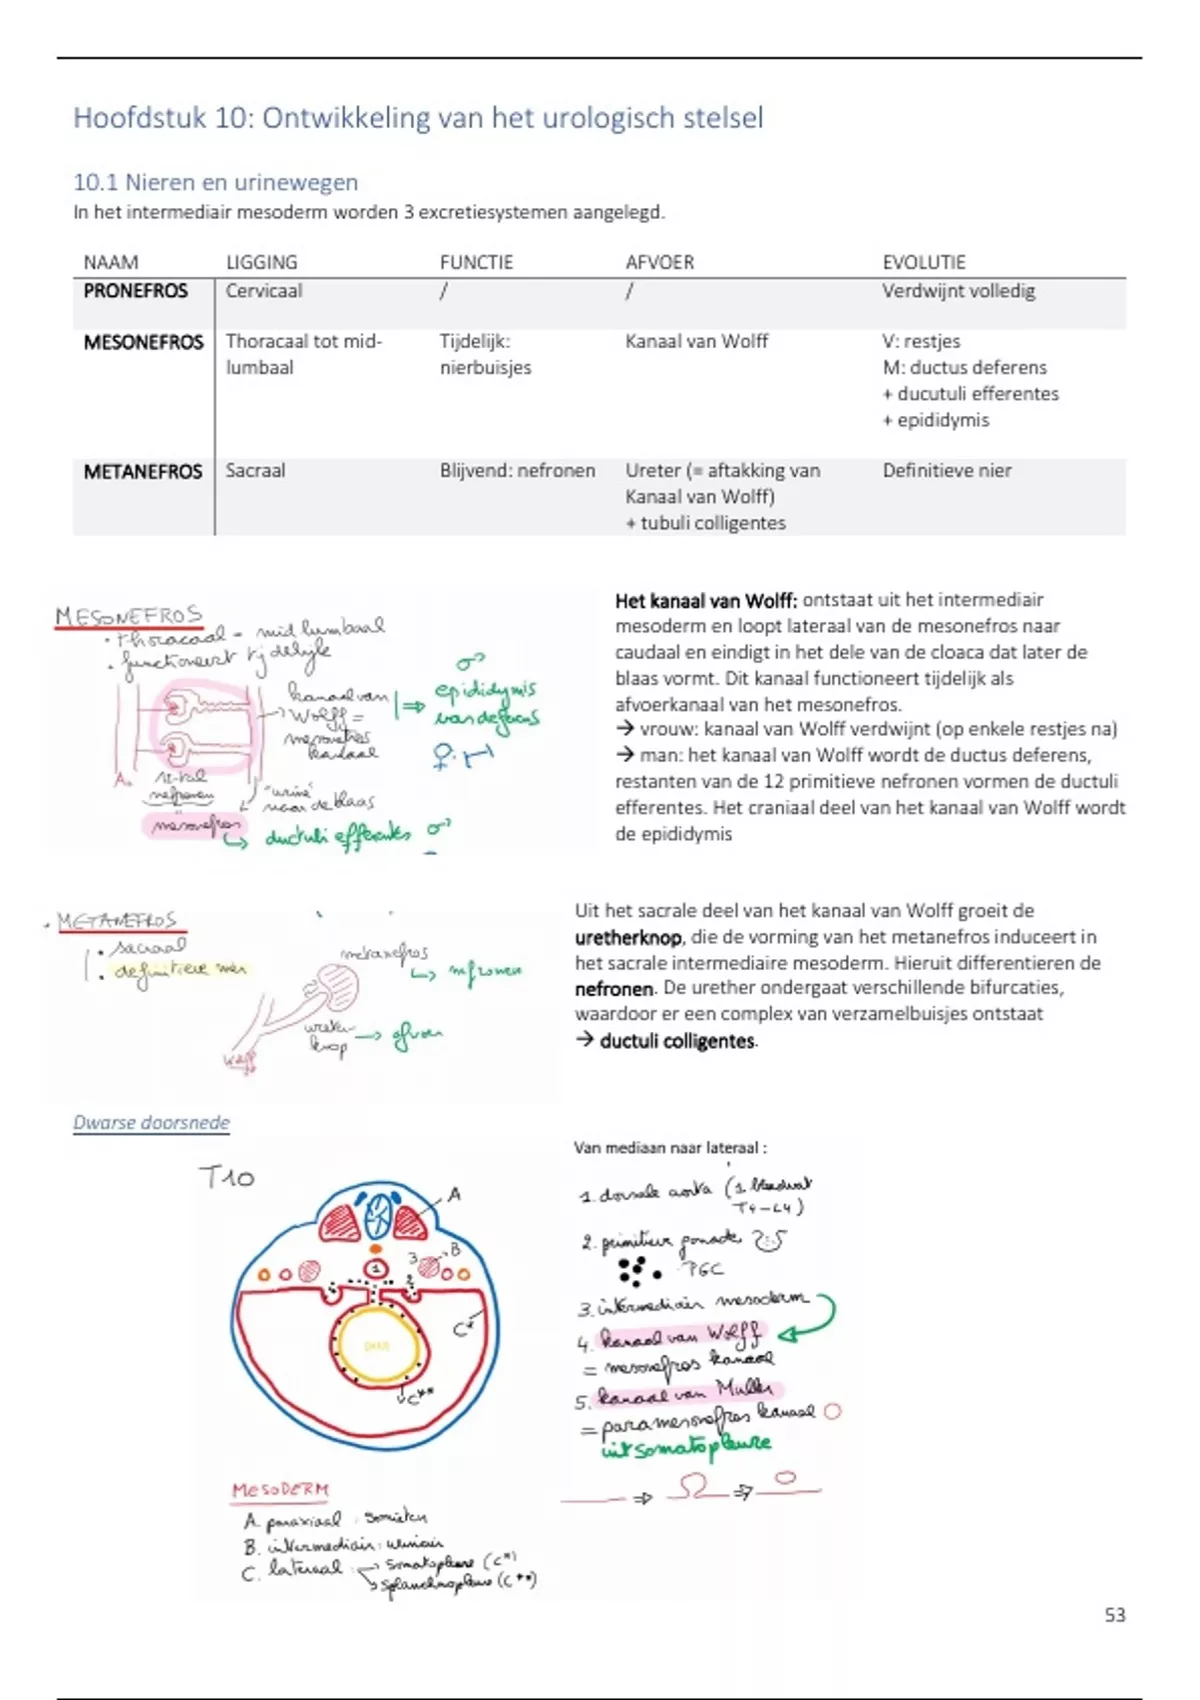 Hoofdstuk 10: Ontwikkeling van het urologisch stelsel
10.1 Nieren en urinewegen
In het intermediair mesoderm worden 3 excretiesystemen aangelegd.
NAAM LIGGING FUNCTIE AFVOER EVOLUTIE
PRONEFROS Cervicaal / / Verdwijnt volledig
MESONEFROS Thoracaal tot mid- Tijdelijk: Kanaal van Wolff V: restjes
lumbaal nierbuisjes M: ductus deferens
+ ducutuli efferentes
+ epididymis
METANEFROS Sacraal Blijvend: nefronen Ureter (= aftakking van Definitieve nier
Kanaal van Wolff)
+ tubuli colligentes
MESONEFROS
• thoracaal - mid lumbaal
• functioneert tijdelijk
kanaal van
Wolff =
mesonefros
kanaal
⇒ ♂
epididymis
vas deferens
♀
A.
nefronen
"urine"
naar de blaas
mesonefros
↳ ductuli efferentes ♂
Het kanaal van Wolff: ontstaat uit het intermediair
mesoderm en loopt lateraal van de mesonefros naar
caudaal en eindigt in het dele van de cloaca dat later de
blaas vormt. Dit kanaal functioneert tijdelijk als
afvoerkanaal van het mesonefros.
→ vrouw: kanaal van Wolff verdwijnt (op enkele restjes na)
→ man: het kanaal van Wolff wordt de ductus deferens,
restanten van de 12 primitieve nefronen vormen de ductuli
efferentes. Het craniaal deel van het kanaal van Wolff wordt
de epididymis
• METANEFROS
• sacraal
• definitieve nier
metanefros
↳ nefronen
ureter
knop → afvoer
Wolff
Uit het sacrale deel van het kanaal van Wolff groeit de
uretherknop, die de vorming van het metanefros induceert in
het sacrale intermediaire mesoderm. Hieruit differentieren de
nefronen. De urether ondergaat verschillende bifurcaties,
waardoor er een complex van verzamelbuisjes ontstaat
→ ductuli colligentes.
Dwarse doorsnede
T10
A
3 B
1 2
C*
C**
Van mediaan naar lateraal :
1. dorsale aorta (1 bloedvat
T4-L4)
2. primitieve gonade
PGC
3. intermediair mesoderm
4. kanaal van Wolff
= mesonefros kanaal
5. kanaal van Muller
= paramesonefros kanaal
uit somatopleure
⇒ ⇒
MESODERM
A. paraxiaal : somieten
B. intermediair:
C. lateraal → somatopleure (C*)
↘ splanchnopleure (C**)
53